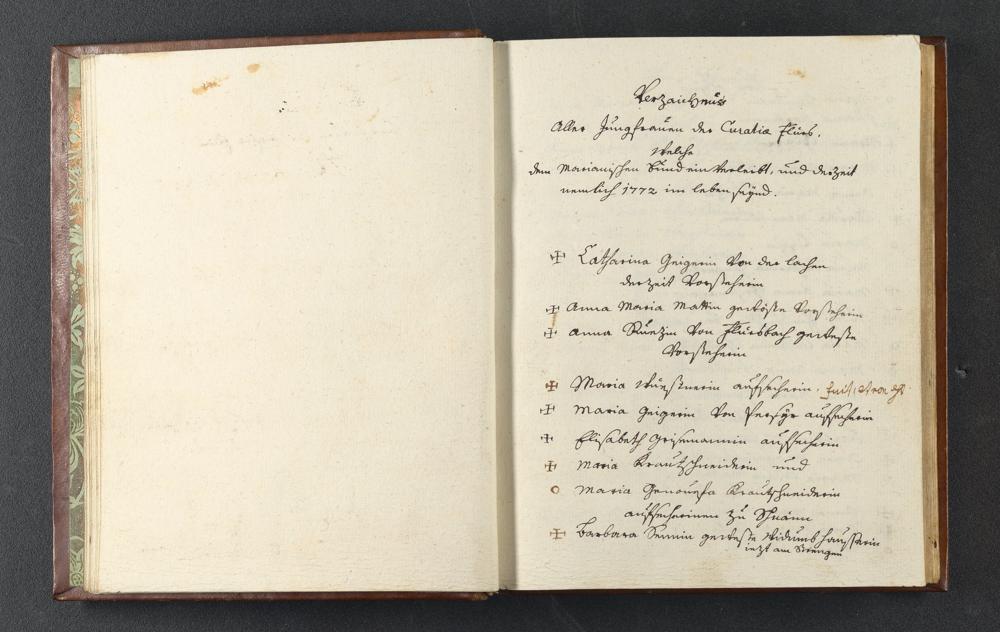 Verzaichnus
Aller Jungfrauen der Curatiæ Flürs,
welche
dem Marianischen Bund einverleibt, und derzeit
nemlich 1772 im leben seynd.
✠ Catharina Geigerin von der lachen
derzeit Vorsteherin
✠ Anna Maria Mattin geweste Vorsteherin
✠ Anna Rüezin von Flürsbach geweste
Vorsteherin
✠ Maria aufseherin.
✠ Maria Geigerin von aufseherin
✠ Elisabeth Grisemannin aufseherin
✠ Maria Krautschneiderin und
○ Maria Genovefa Krautschneiderin
aufseherinen zu Schnann
✠ Barbara Sennin geweste Widumbshauserin
iezt am Strengen